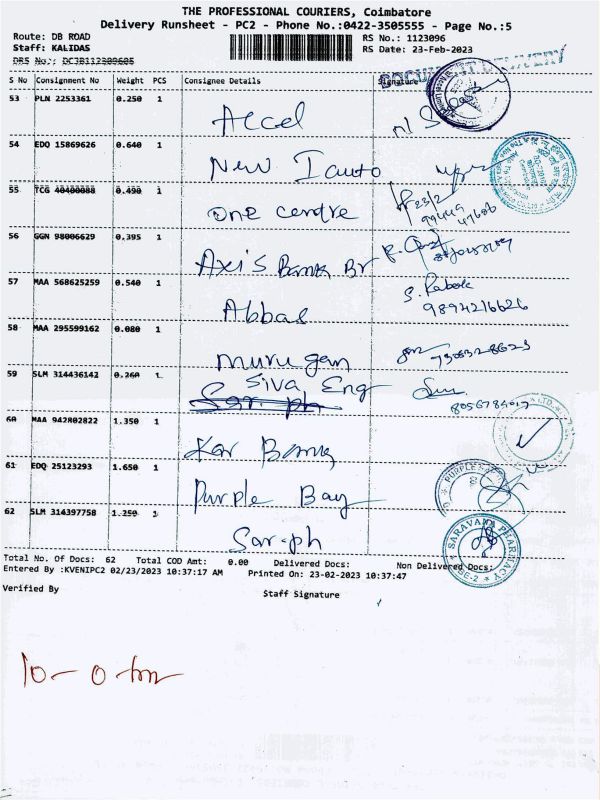 THE PROFESSIONAL COURIERS, Coimbatore
Delivery Runsheet - PC2 - Phone No.:0422-3505555 - Page No.:5
Route: DB ROAD RS No.: 1123096
Staff: KALIDAS RS Date: 23-Feb-2023
DRS No.:
DOCUMENT DELIVERY
S No Consignment No Weight PCS Consignee Details Signature
53 PLN 2253361 0.250 1 Accel
54 EDQ 15869626 0.640 1 New I auto
55 TCG 40400088 0.490 1 one centre 23/2
56 GGN 98006629 0.395 1 Axis Bank Br
57 MAA 568625259 0.540 1 Abbas 9894216626
58 MAA 295599162 0.080 1 murugan
59 SLM 314436142 0.260 1 Siva Eng
8056784017
60 MAA 942802822 1.350 1 Kar Bank
61 EDQ 25123293 1.650 1 Purple Bay PURPLE
62 SLM 314397758 1.250 1 Sar.ph SARAVANA PHARMACY
Total No. Of Docs: 62 Total COD Amt: 0.00 Delivered Docs: Non Delivered Docs:
Entered By :KVENIPC2 02/23/2023 10:37:17 AM Printed On: 23-02-2023 10:37:47
Verified By Staff Signature